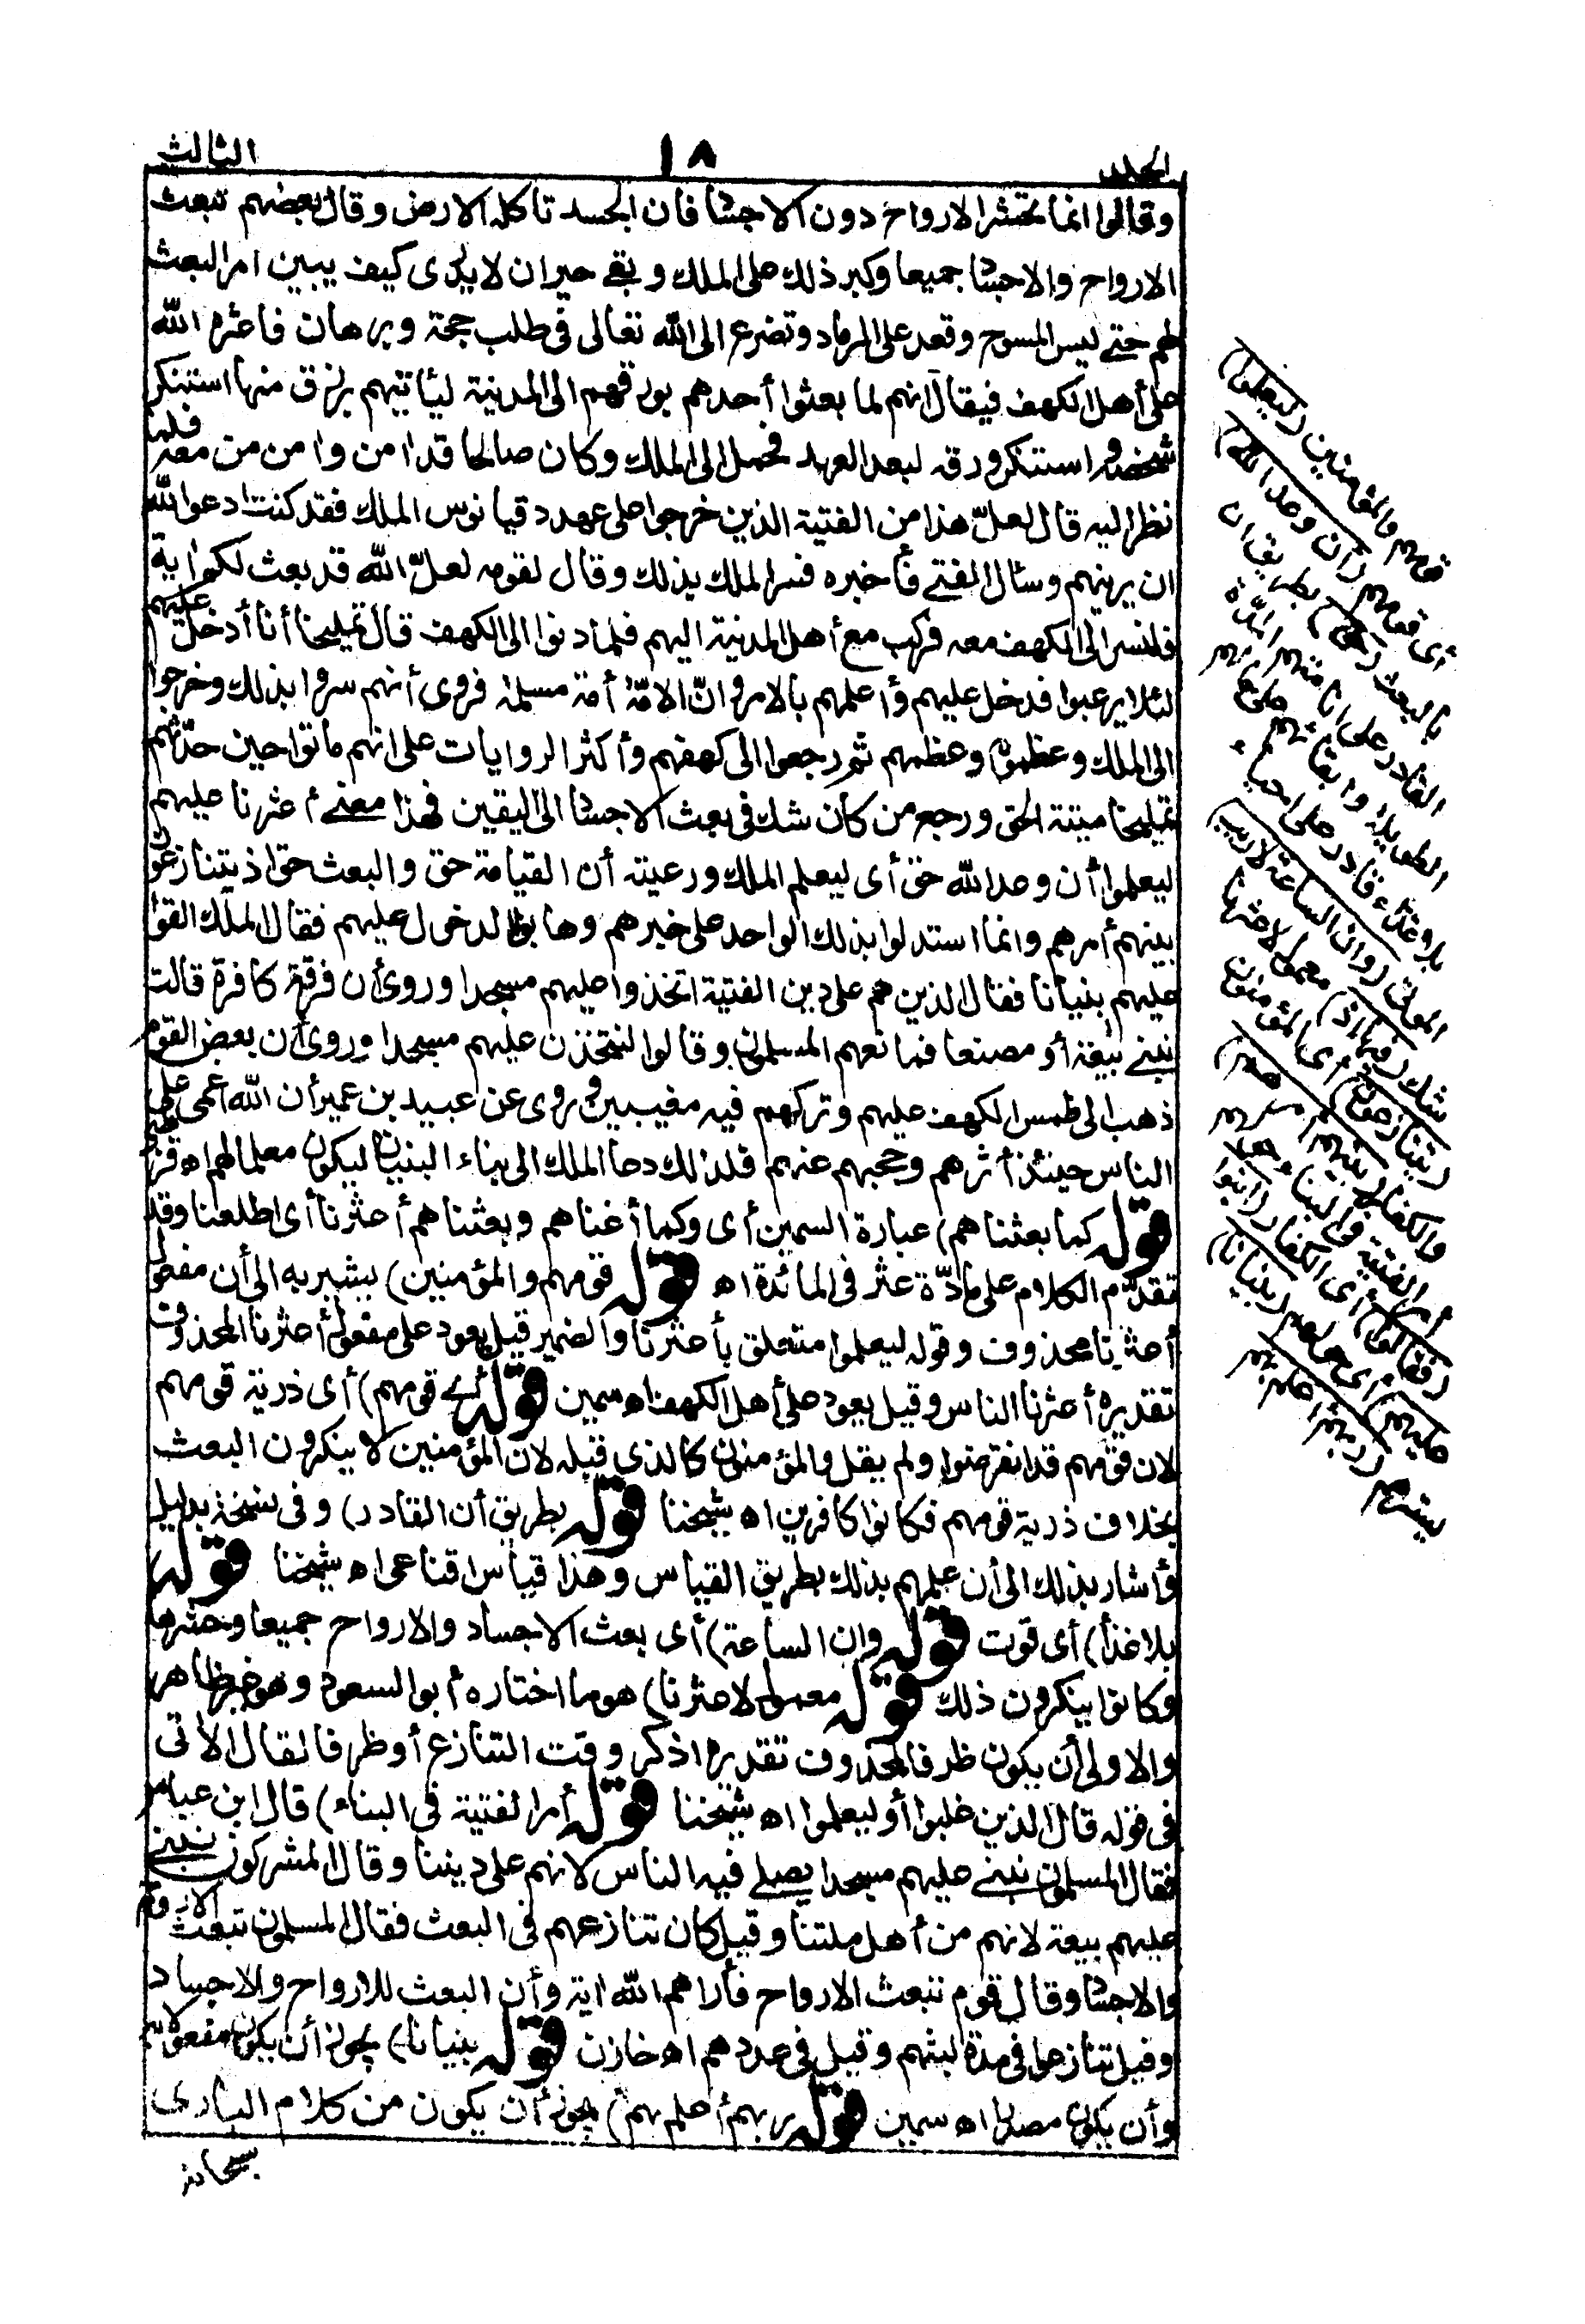 المجلد ١٨ الثالث
وقالوا انما تحشر الارواح دون الاجساد فان الجسد تاكله الارض وقال بعضهم تبعث
الارواح والاجساد جميعا وكبر ذلك على الملك وبقى حيران لا يدرى كيف يبين امر البعث
لهم حتى لبس المسوح وقعد على الرماد وتضرع الى الله تعالى فى طلب حجة وبرهان فاعثره الله
على أهل الكهف فيقال انهم لما بعثوا أحدهم بورقهم الى المدينة ليأتيهم برزق منها استنكر
شخصه واستنكر ورقه لبعد العهد فحمل الى الملك وكان صالحا قد امن وامن من معه فلما
نظر اليه قال لعلّ هذا من الفتية الذين خرجوا على عهد دقيانوس الملك فقد كنت ادعو الله
ان يرينيهم وسأل الفتى فأخبره فسر الملك بذلك وقال لقومه لعلّ الله قد بعث لكم اية
فلنسر الى الكهف معه فركب مع أهل المدينة اليهم فلما دنوا الى الكهف قال تمليخا أنا أدخل عليهم
لئلا يرعبوا فدخل عليهم وأعلمهم بالامر وانّ الامّة أمة مسلمة فروى أنهم سروا بذلك وخرجوا
الى الملك وعظموه وعظمهم ثم رجعوا الى كهفهم وأكثر الروايات على انهم ماتوا حين حدّثهم
تمليخا ميتة الحق ورجع من كان شك فى بعث الاجساد الى اليقين فهذا معنى أعثرنا عليهم
ليعلموا أن وعد الله حق أى ليعلم الملك ورعيته أن القيامة حق والبعث حق اذ يتنازعون
بينهم أمرهم وانما استدلوا بذلك الواحد على خبرهم وهابوا الدخول عليهم فقال الملك ابنوا
عليهم بنيانا فقال الذين هم على دين الفتية اتخذوا عليهم مسجدا وروى أن فرقة كافرة قالت
نبنى بيعة أو مصنعا فمانعهم المسلمون وقالوا لنتخذن عليهم مسجدا وروى أن بعض القوم
ذهب الى طمس الكهف عليهم وتركهم فيه مغيبين وروى عن عبيد بن عمير أن الله أعمى على
الناس حينئذ أثرهم وحجبهم عنهم فلذلك دعا الملك الى بناء البنيان ليكون معلما لهم اه قرطبى
قوله كما بعثناهم) عبارة السمين أى وكما أغناهم وبعثناهم أعثرنا أى اطلعنا وقد
تقدّم الكلام على مادّة عثر فى المائدة اه قوله قومهم والمؤمنين) يشير به الى أن مفعول
أعثرنا محذوف وقوله ليعلموا متعلق بأعثرنا والضمير قيل يعود على مفعول أعثرنا المحذوف
تقديره أعثرنا الناس وقيل يعود على أهل الكهف اه سمين قوله أى قومهم) أى ذرية قومهم
لان قومهم قد انقرضوا ولم يقل والمؤمنون كالذى قبله لان المؤمنين لا ينكرون البعث
بخلاف ذرية قومهم فكانوا كافرين اه شيخنا قوله بطريق أن القادر) وفى نسخة بدليل
وأشار بذلك الى أن علمهم بذلك بطريق القياس وهذا قياس اقناعى اه شيخنا قوله
بلا غذاء) أى قوت قوله وان الساعة) أى بعث الاجساد والارواح جميعا وحشرها
وكانوا ينكرون ذلك قوله معمول لاعثرنا) هو ما اختاره أبو السعود وهو غير ظاهر
والاولى أن يكون ظرفا لمحذوف تقديره اذكر وقت التنازع أو ظرفا لقال الاتى
فى قوله قال الذين غلبوا أو ليعلموا اه شيخنا قوله أمر الفتية فى البناء) قال ابن عباس
فقال المسلمون نبنى عليهم مسجدا يصلى فيه الناس لانهم على ديننا وقال المشركون نبنى
عليهم بيعة لانهم من أهل ملتنا وقيل كان تنازعهم فى البعث فقال المسلمون تبعث الارواح
والاجساد وقال قوم تبعث الارواح فأراهم الله اية وأن البعث للارواح والاجساد
وقيل تنازعوا فى مدة لبثهم وقيل فى عددهم اه خازن قوله بنيانا) يجوز أن يكون مفعولا به
وأن يكون مصدرا اه سمين قوله ربهم أعلم بهم) يجوز أن يكون من كلام البارى
سبحانه
قومهم والمؤمنين (ليعلموا)
أى قومهم (أن وعد الله)
بالبعث (حق) بطريق ان
القادر على انامتهم المدّة
الطويلة وابقائهم على حالهم
بلا غذاء قادر على احياء
الموتى (وان الساعة لا ريب)
شك (فيها اذ) معمول لاعثرنا
(يتنازعون) أى المؤمنون
والكفار (بينهم أمرهم)
أمر الفتية فى البناء حولهم
(فقالوا) أى الكفار (ابنوا
عليهم) أى حولهم (بنيانا)
يسترهم (ربهم أعلم بهم